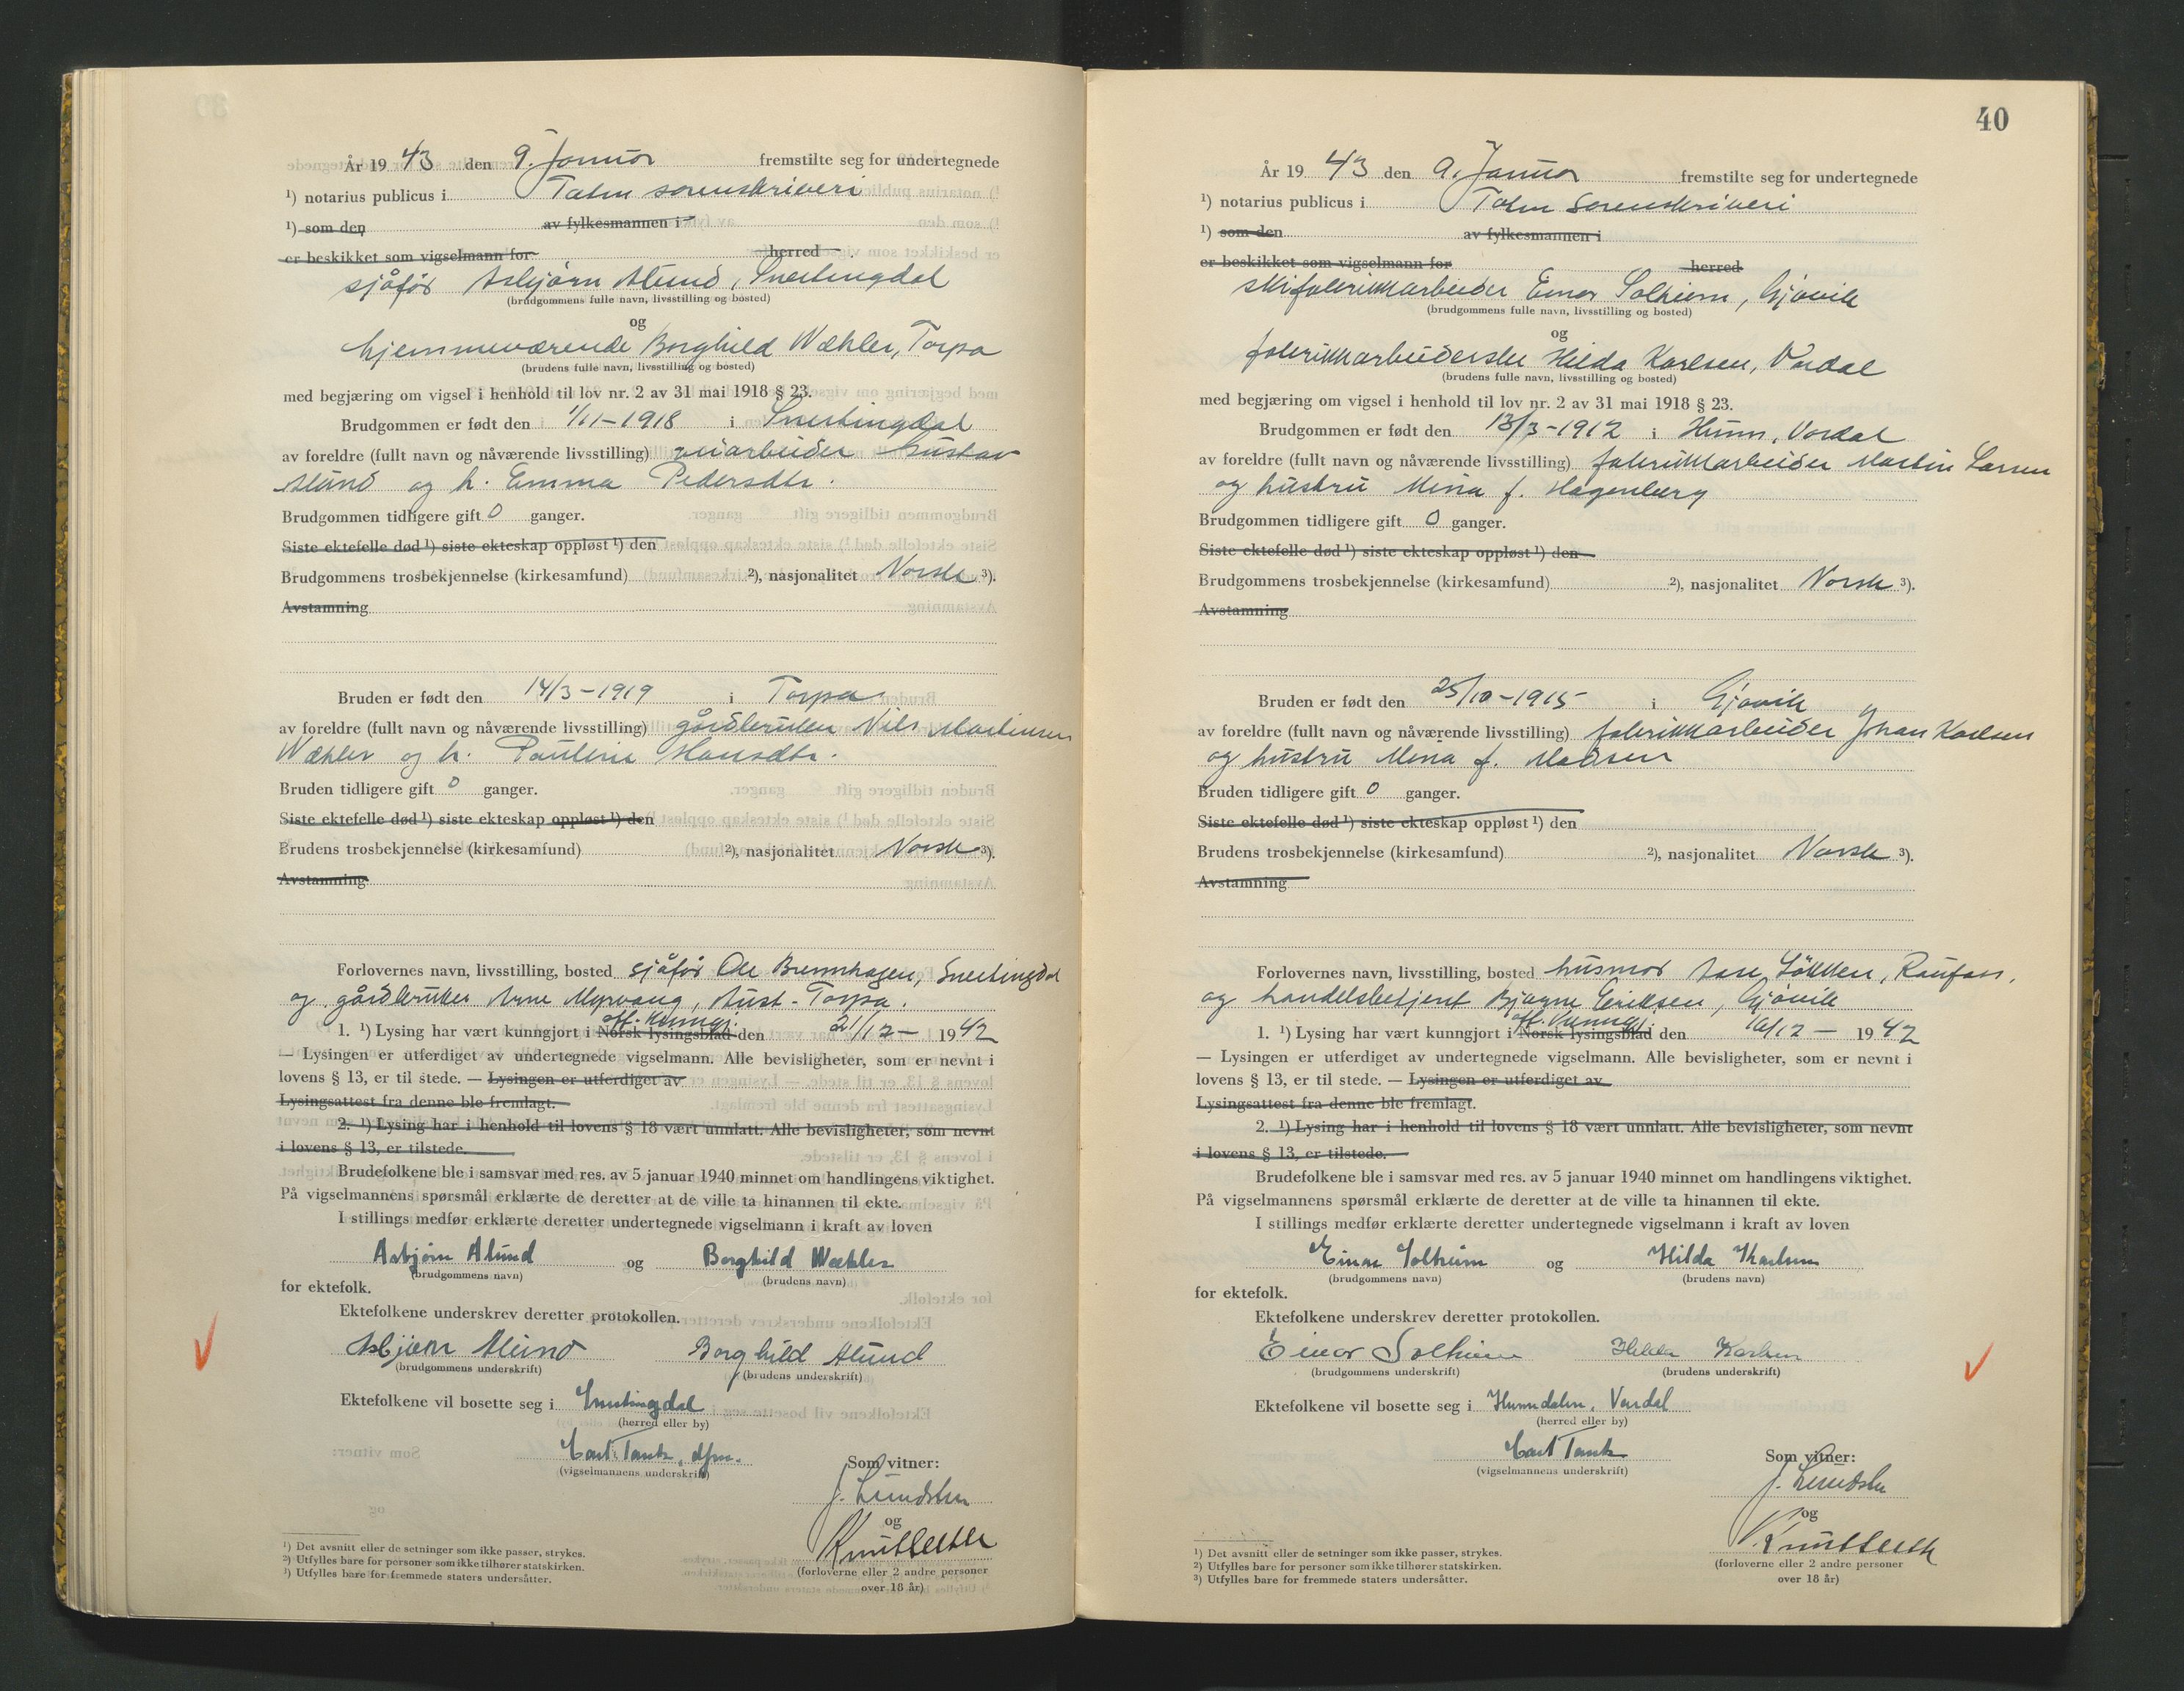 År 19 43 den 9. Januar fremstilte seg for undertegnede
¹) notarius publicus i Toten sorenskriveri
¹) som den av fylkesmannen i
er beskikket som vigselmann for herred
sjåfør Asbjørn Ålund, Snertingdal
(brudgommens fulle navn, livsstilling og bosted)
og
hjemmeværende Borghild Wæhler, Torpa
(brudens fulle navn, livsstilling og bosted)
med begjæring om vigsel i henhold til lov nr. 2 av 31 mai 1918 § 23.
Brudgommen er født den 1/11-1918 i Snertingdal
av foreldre (fullt navn og nåværende livsstilling) veiarbeider Gustav
Ålund og h. Emma Pedersdtr.
Brudgommen tidligere gift 0 ganger.
Siste ektefelle død ¹) siste ekteskap oppløst ¹) den
Brudgommens trosbekjennelse (kirkesamfund) ²), nasjonalitet Norsk ³).
Avstamning
Bruden er født den 14/3-1919 i Torpa
av foreldre (fullt navn og nåværende livsstilling) gårdbruker Nils Martinsen
Wæhler og h. Pauline Hansdtr.
Bruden tidligere gift 0 ganger.
Siste ektefelle død ¹) siste ekteskap oppløst ¹) den
Brudens trosbekjennelse (kirkesamfund) ²), nasjonalitet Norsk ³).
Avstamning
Forlovernes navn, livsstilling, bosted sjåfør Ole Brennhagen, Snertingdal
og gårdbruker Arne Myrvang, Aust-Torpa.
off. kunngj.
1. ¹) Lysing har vært kunngjort i Norsk lysingsblad den 21/12- 1942
— Lysingen er utferdiget av undertegnede vigselmann. Alle bevisligheter, som er nevnt i
lovens § 13, er til stede. — Lysingen er utferdiget av
Lysingsattest fra denne ble fremlagt.
2. ¹) Lysing har i henhold til lovens § 18 vært unnlatt. Alle bevisligheter, som nevnt
i lovens § 13, er tilstede.
Brudefolkene ble i samsvar med res. av 5 januar 1940 minnet om handlingens viktighet.
På vigselmannens spørsmål erklærte de deretter at de ville ta hinannen til ekte.
I stillings medfør erklærte deretter undertegnede vigselmann i kraft av loven
Asbjørn Ålund og Borghild Wæhler
(brudgommens navn) (brudens navn)
for ektefolk.
Ektefolkene underskrev deretter protokollen.
Asbjørn Ålund Borghild Ålund
(brudgommens underskrift) (brudens underskrift)
Ektefolkene vil bosette seg i Snertingdal
(herred eller by)
Carl Tank, dfm.
(vigselmannens underskrift)
Som vitner:
J. Lundsten
og
Knut Seth
(forloverne eller 2 andre personer
over 18 år)
¹) Det avsnitt eller de setninger som ikke passer, strykes.
²) Utfylles bare for personer som ikke tilhører statskirken.
³) Utfylles bare for fremmede staters undersåtter.
40
År 19 43 den 9. Januar fremstilte seg for undertegnede
¹) notarius publicus i Toten Sorenskriveri
¹) som den av fylkesmannen i
er beskikket som vigselmann for herred
skifabrikkarbeider Einar Solheim, Gjøvik
(brudgommens fulle navn, livsstilling og bosted)
og
fabrikkarbeiderske Hilda Karlsen, Vardal
(brudens fulle navn, livsstilling og bosted)
med begjæring om vigsel i henhold til lov nr. 2 av 31 mai 1918 § 23.
Brudgommen er født den 13/3-1912 i Hunn, Vardal
av foreldre (fullt navn og nåværende livsstilling) fabrikkarbeider Martin Larsen
og hustru Mina f. Hagenberg
Brudgommen tidligere gift 0 ganger.
Siste ektefelle død ¹) siste ekteskap oppløst ¹) den
Brudgommens trosbekjennelse (kirkesamfund) ²), nasjonalitet Norsk ³).
Avstamning
Bruden er født den 25/10-1915 i Gjøvik
av foreldre (fullt navn og nåværende livsstilling) fabrikkarbeider Johan Karlsen
og hustru Mina f. Madsen
Bruden tidligere gift 0 ganger.
Siste ektefelle død ¹) siste ekteskap oppløst ¹) den
Brudens trosbekjennelse (kirkesamfund) ²), nasjonalitet Norsk ³).
Avstamning
Forlovernes navn, livsstilling, bosted husmor Aase Løkken, Raufoss,
og handelsbetjent Bjarne Eriksen, Gjøvik
off. kunngj.
1. ¹) Lysing har vært kunngjort i Norsk lysingsblad den 16/12 — 1942
— Lysingen er utferdiget av undertegnede vigselmann. Alle bevisligheter, som er nevnt i
lovens § 13, er til stede. — Lysingen er utferdiget av
Lysingsattest fra denne ble fremlagt.
2. ¹) Lysing har i henhold til lovens § 18 vært unnlatt. Alle bevisligheter, som nevnt
i lovens § 13, er tilstede.
Brudefolkene ble i samsvar med res. av 5 januar 1940 minnet om handlingens viktighet.
På vigselmannens spørsmål erklærte de deretter at de ville ta hinannen til ekte.
I stillings medfør erklærte deretter undertegnede vigselmann i kraft av loven
Einar Solheim og Hilda Karlsen
(brudgommens navn) (brudens navn)
for ektefolk.
Ektefolkene underskrev deretter protokollen.
Einar Solheim Hilda Karlsen
(brudgommens underskrift) (brudens underskrift)
Ektefolkene vil bosette seg i Hunndalen, Vardal
(herred eller by)
Carl Tank
(vigselmannens underskrift)
Som vitner:
J. Lundsten
og
Knut Seth
(forloverne eller 2 andre personer
over 18 år)
¹) Det avsnitt eller de setninger som ikke passer, strykes.
²) Utfylles bare for personer som ikke tilhører statskirken.
³) Utfylles bare for fremmede staters undersåtter.